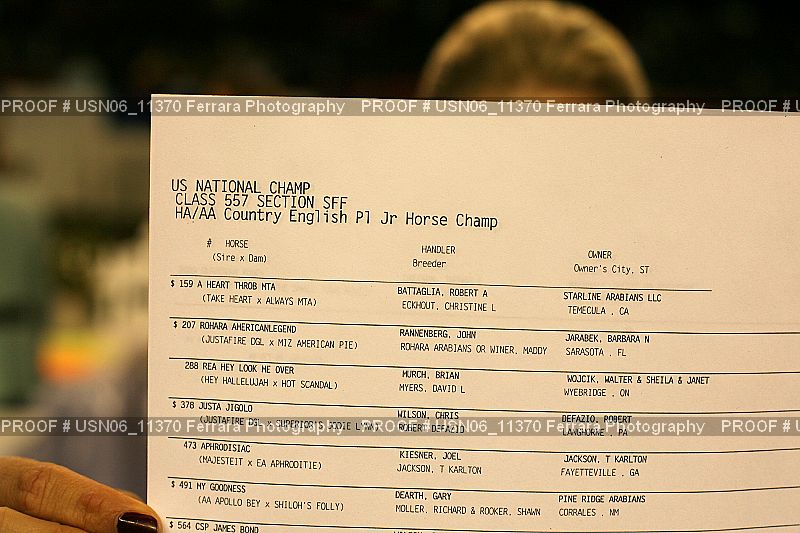 PROOF # USN06_11370 Ferrara Photography PROOF # USN06_11370 Ferrara Photography PROOF # U
US NATIONAL CHAMP
CLASS 557 SECTION SFF
HA/AA Country English Pl Jr Horse Champ
# HORSE HANDLER OWNER
(Sire x Dam) Breeder Owner's City, ST
$ 159 A HEART THROB MTA BATTAGLIA, ROBERT A STARLINE ARABIANS LLC
(TAKE HEART x ALWAYS MTA) ECKHOUT, CHRISTINE L TEMECULA , CA
$ 207 ROHARA AMERICANLEGEND RANNENBERG, JOHN JARABEK, BARBARA N
(JUSTAFIRE DGL x MIZ AMERICAN PIE) ROHARA ARABIANS OR WINER, MADDY SARASOTA , FL
288 REA HEY LOOK ME OVER MURCH, BRIAN WOJCIK, WALTER & SHEILA & JANET
(HEY HALLELUJAH x HOT SCANDAL) MYERS, DAVID L WYEBRIDGE , ON
$ 378 JUSTA JIGOLO WILSON, CHRIS DEFAZIO, ROBERT
(JUSTAFIRE DGL x SUPERIOR'S DODIE LYNN) ROBERT DEFAZIO LANGHORNE , PA
PROOF # USN06_11370 Ferrara Photography PROOF # USN06_11370 Ferrara Photography PROOF # U
473 APHRODISIAC KIESNER, JOEL JACKSON, T KARLTON
(MAJESTEIT x EA APHRODITIE) JACKSON, T KARLTON FAYETTEVILLE , GA
$ 491 MY GOODNESS DEARTH, GARY PINE RIDGE ARABIANS
(AA APOLLO BEY x SHILOH'S FOLLY) MOLLER, RICHARD & ROOKER, SHAWN CORRALES , NM
$ 564 CSP JAMES BOND